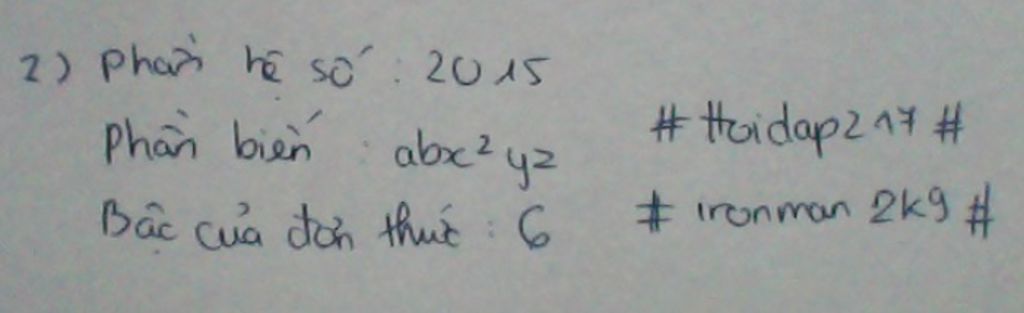 2) Phần hệ số : 2015
Phần biến : abx²yz
# Hoidap217 #
Bậc của đơn thức : 6
# ironman 2k9 #